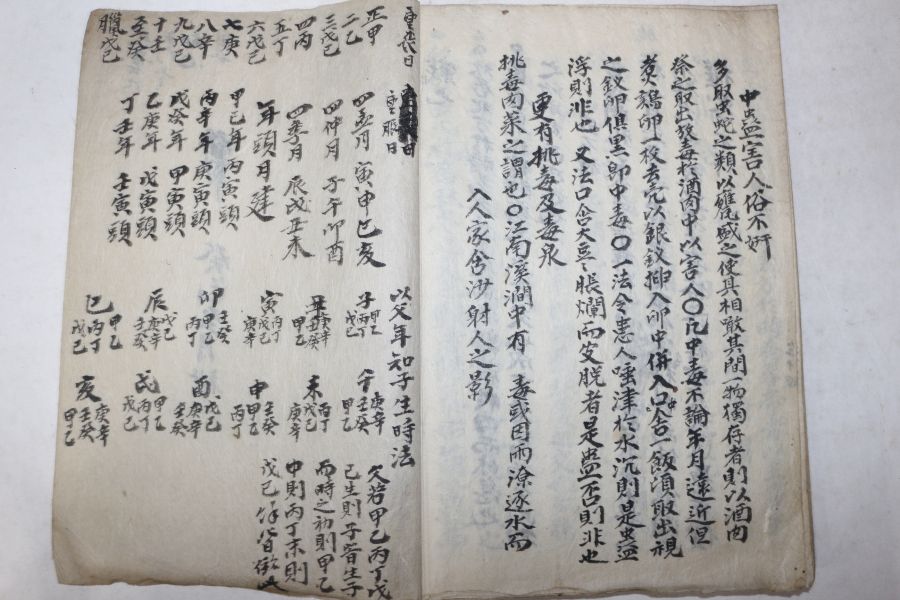 中蠱害人俗不奸
多取虫蛇之類以甕盛之使其相噉其間一物獨存者則以酒肉
祭之取出放毒於酒肉中以害人○凡中毒不論年月遠近但
煑鷄卵一枚去売以銀釵揷入卵中併入口含一飯頃取出視
之釵卵俱黑卽中毒○一法令患人唾津於水沉則是蠱
浮則非也 又法口含大豆豆脹爛而皮脫者是蠱否則非也
更有挑毒及毒泉
挑毒肉菜之謂也○江南溪澗中有 毒或因雨涂逐水而
入人家含沙射人之影
重喪日
正甲
二乙
三戊己
四丙
五丁
六戊己
七庚
八辛
九戊己
十壬
至癸
臘戊己
重服日
四孟月 寅申巳亥
四仲月 子午卯酉
四季月 辰戌丑未
年頭月建
甲己年 丙寅頭
丙辛年 庚寅頭
戊癸年 甲寅頭
乙庚年 戊寅頭
丁壬年 壬寅頭
以父年知子生時法
子 甲乙 丙丁 戊己
丑
寅 丙丁 戊己 庚辛
卯 壬癸 甲乙 丙丁
辰 戊己 庚辛 壬癸
巳 甲乙 丙丁 戊己
午 庚辛 壬癸 甲乙
未 丙丁 戊己 庚辛
申 壬癸 甲乙 丙丁
酉 戊己 庚辛 壬癸
戌 甲乙 丙丁 戊己
亥 庚辛 壬癸 甲乙
父若甲乙丙丁戊
己生則子皆生子
而時之初則甲乙
中則丙丁末則
戊己餘皆倣此